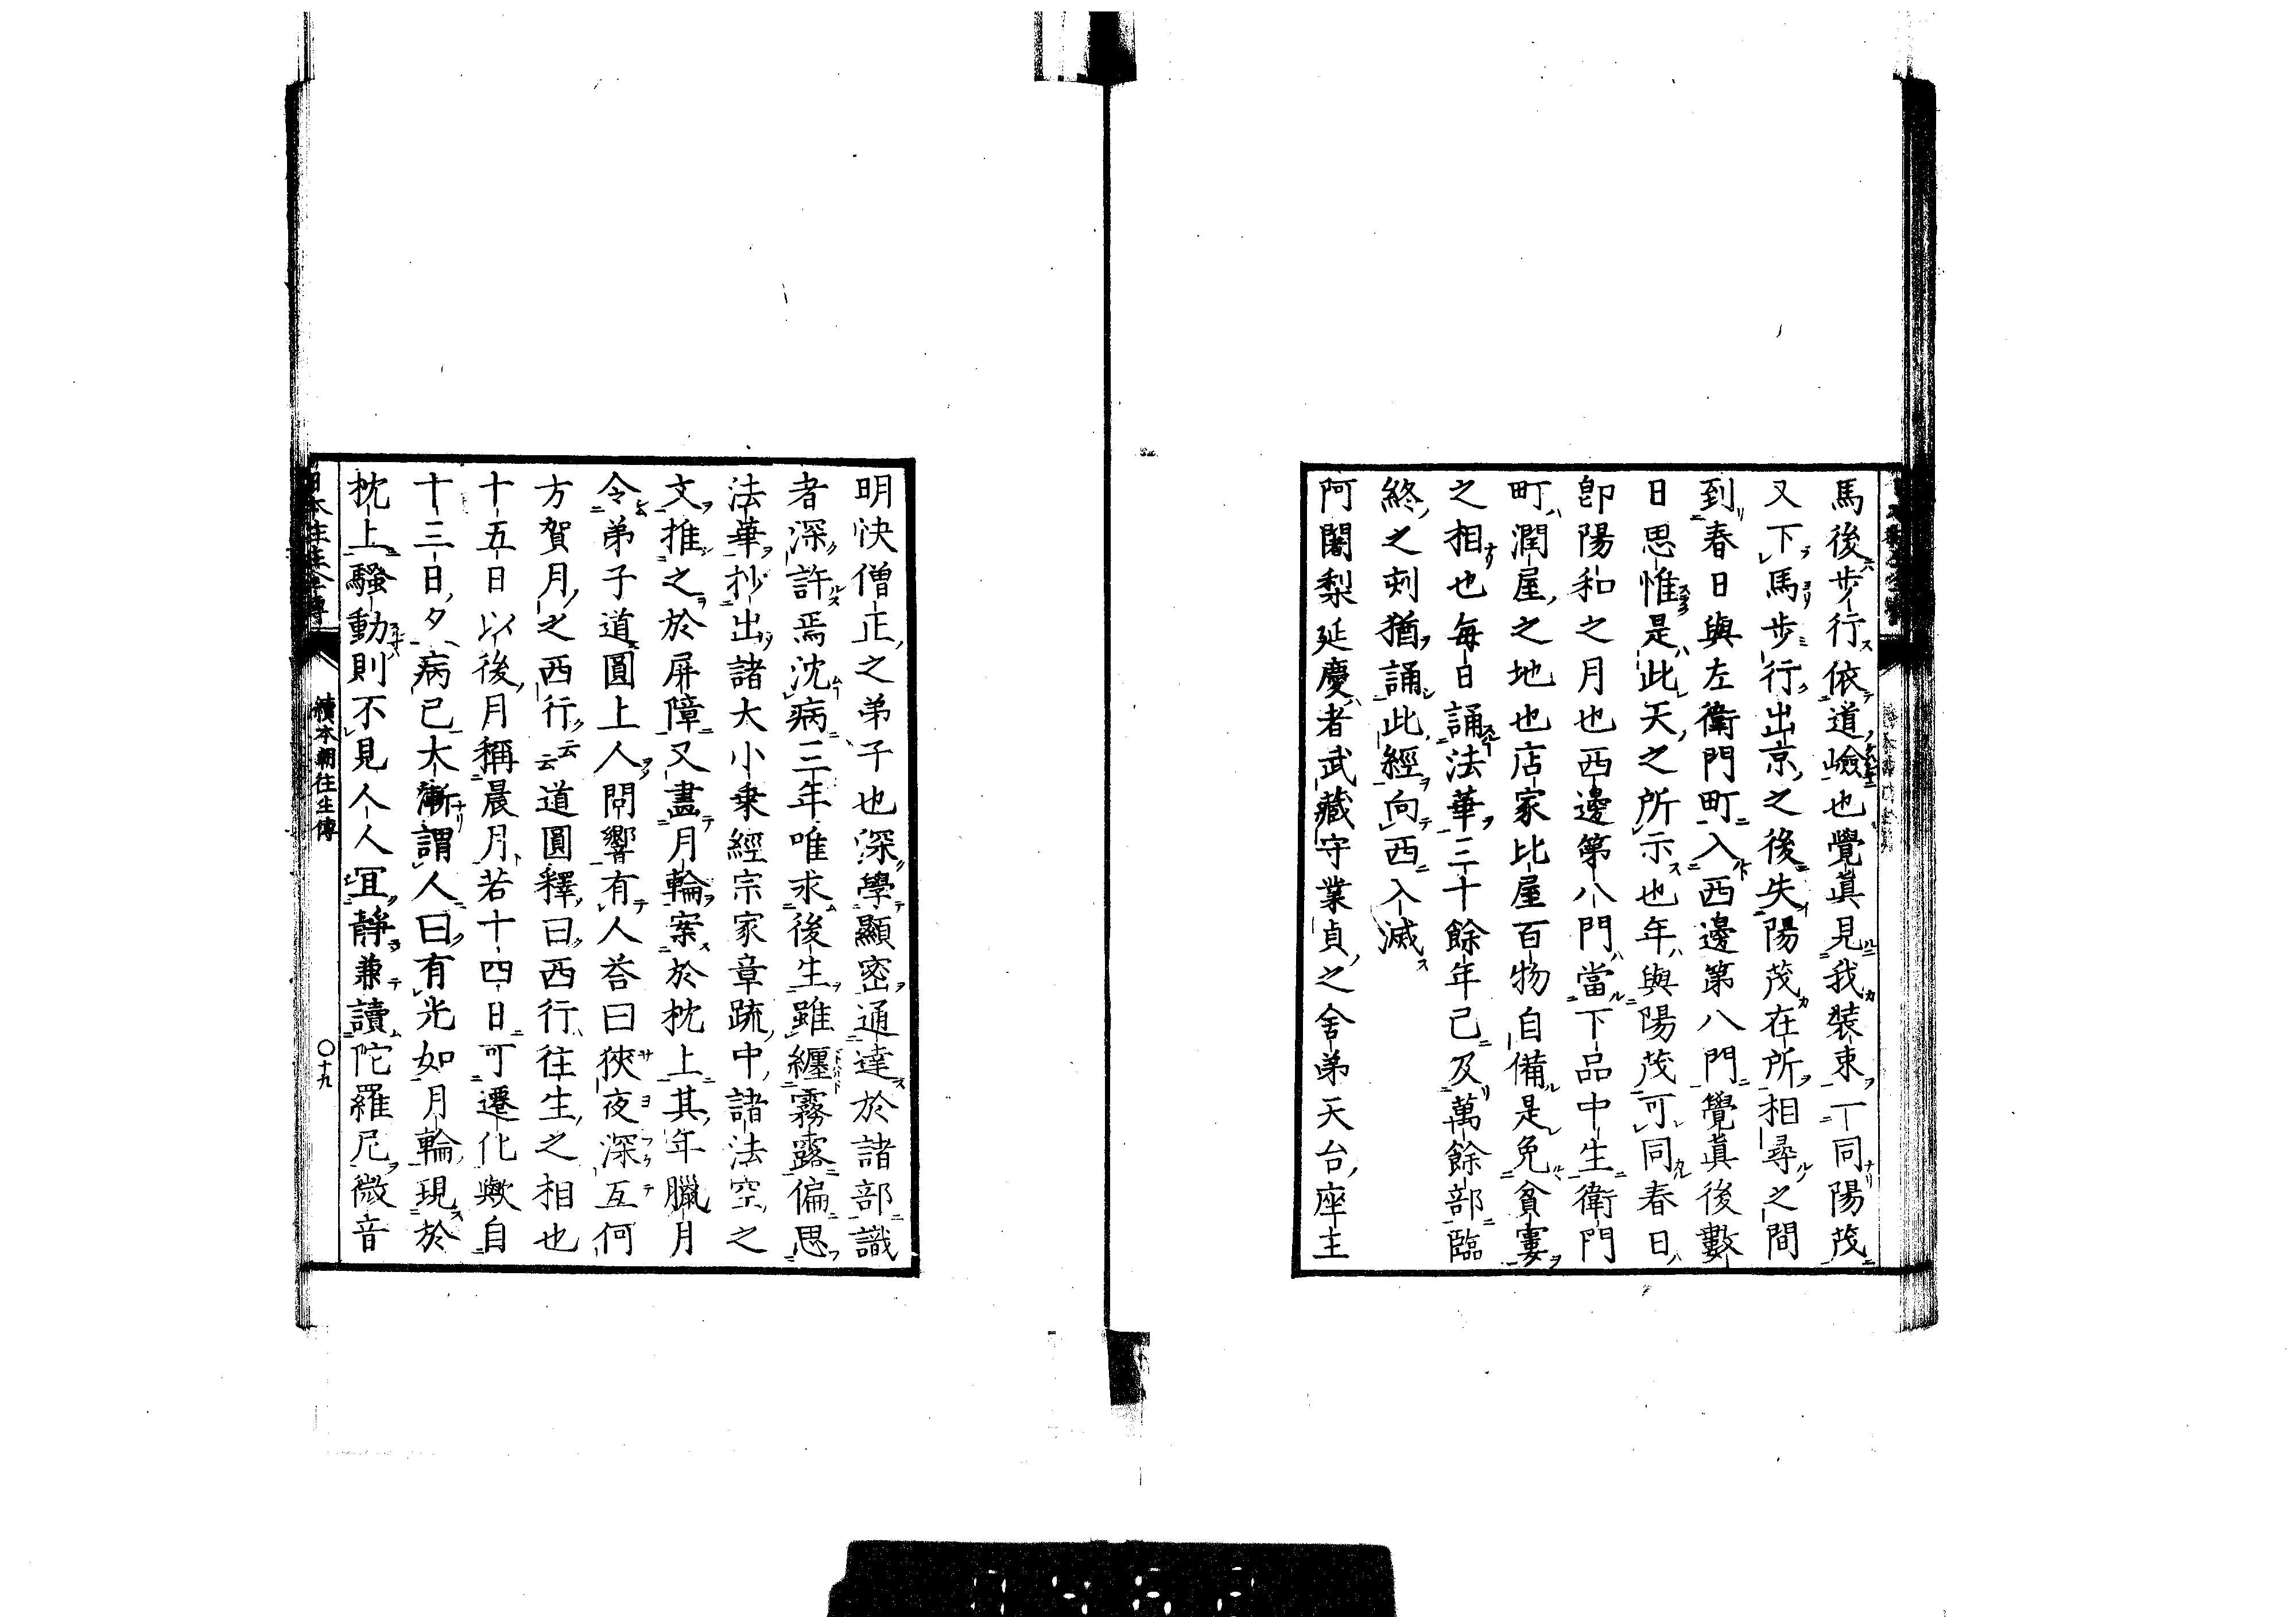 馬後步行依道嶮也覺眞見我裝束一同陽茂
又下馬步行出京之後失陽茂在所相尋之間
到春日與左衞門町入西邊第八門覺眞後數
日思惟是此天之所示也年與陽茂可同春日
卽陽和之月也西邊第八門當下品中生衞門
町潤屋之地也店家比屋百物自備是免貧寠
之相也每日誦法華三十餘年已及萬餘部臨
終之刻猶誦此經向西入滅
阿闍梨延慶者武藏守業貞之舍弟天台座主
明快僧正之弟子也深學顯密通達於諸部識
者深許焉沈病三年唯求後生雖纏霧露偏思
法華抄出諸大小乘經宗家章疏中諸法空之
文推之於屏障又畫月輪案於枕上其年臘月
令弟子道圓上人問響有人答曰狹夜深互何
方賀月之西行云云道圓釋曰西行往生之相也
十五日以後月稱晨月若十四日可遷化歟自
十三日夕病已大漸謂人曰有光如月輪現於
枕上騷動則不見人人宜靜兼讀陀羅尼微音
日本往生全傳
續本朝往生傳
〇十九